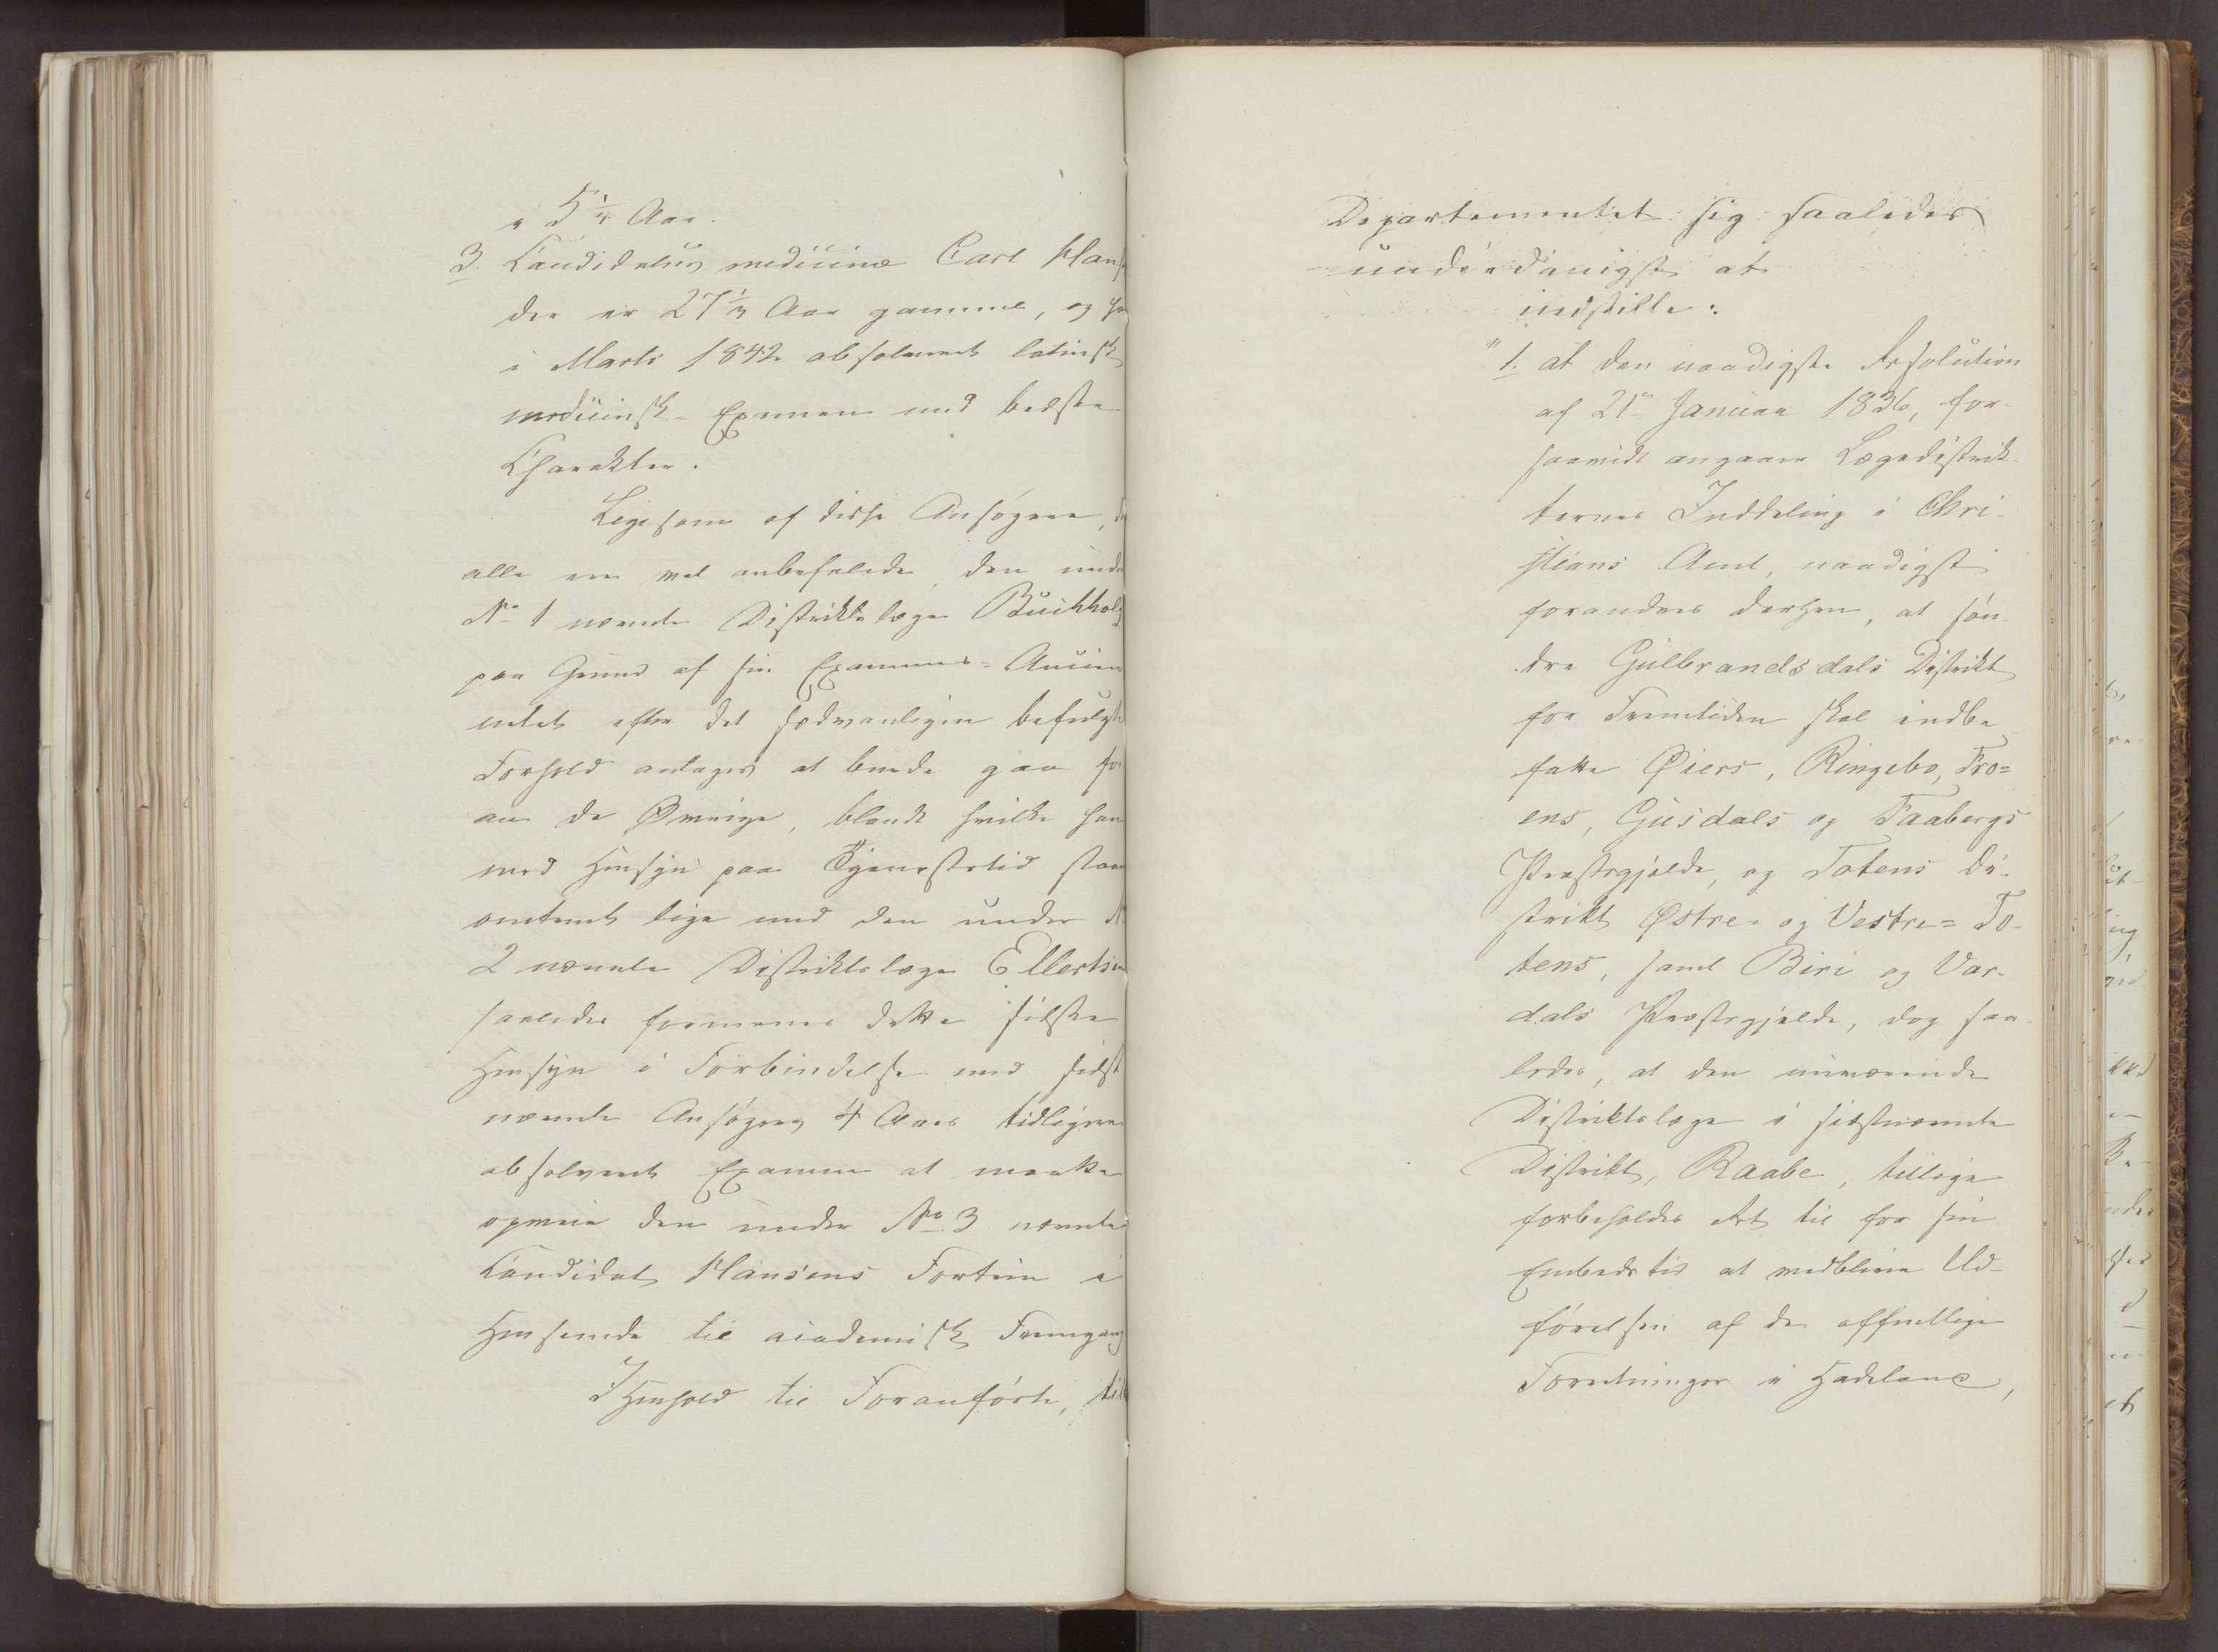 " 5 1/4 Aar.
3. Candidatus medicinæ Carl Hans
der er 27 1/2 Aar gammel, og ha
i Marts 1842 absolveret latinsk
medicinsk-Examen med bedste
Charakter.
Ligesom af disse Ansøgere, d
alle ere vel anbefalede, den unde
No 1 nævnte Distriktslæge Buchholz
paa Grund af sin Examens-Ancien
nitet efter det sædvanligen befulgte
Forhold antages at burde gaa for
an de Øvrige, blandt hvilke han
med Hensyn paa Tjenestetid staar
omtrent lige med den under N
2 nævnte Distriktslæge Ellertsen
saaledes formenes dette sidste
Hensyn i Forbindelse med sidst
nævnte Ansøgers 4 Aars tidligere
absolveret Examen at maatte
opveie den under No 3 nævnte
Candidat Hansens Fortrin i
Henseende til academisk Fremgang
I Henhold til Foranførte, til
Departementet sig saaledes
underdanigst at
indstille:
"1. at den naadigste Resolution
af 21de Januar 1836, for-
saavidt angaaer Lægedistrik-
ternes Inddeling i Chri-
stians Amt, naadigst
forandres derhen, at søn-
dre Gulbrandsdals Distrikt
for Fremtiden skal indbe
fatte Øiers, Ringebo, Fro=
ens, Gusdals og Faabergs
Præstegjelde, og Totens Di-
strikt Østre- og Vestre= To-
tens, samt Biri og Var-
dals Præstegjelde, dog saa-
ledes, at den nuværende
Distriktslæge i sidstnævnte
Distrikt, Raabe, tillige
forbeholdes Ret til for sin
Embedstid at vedblive Ud-
førelsen af de offentlige
Forretninger i Hadeland,